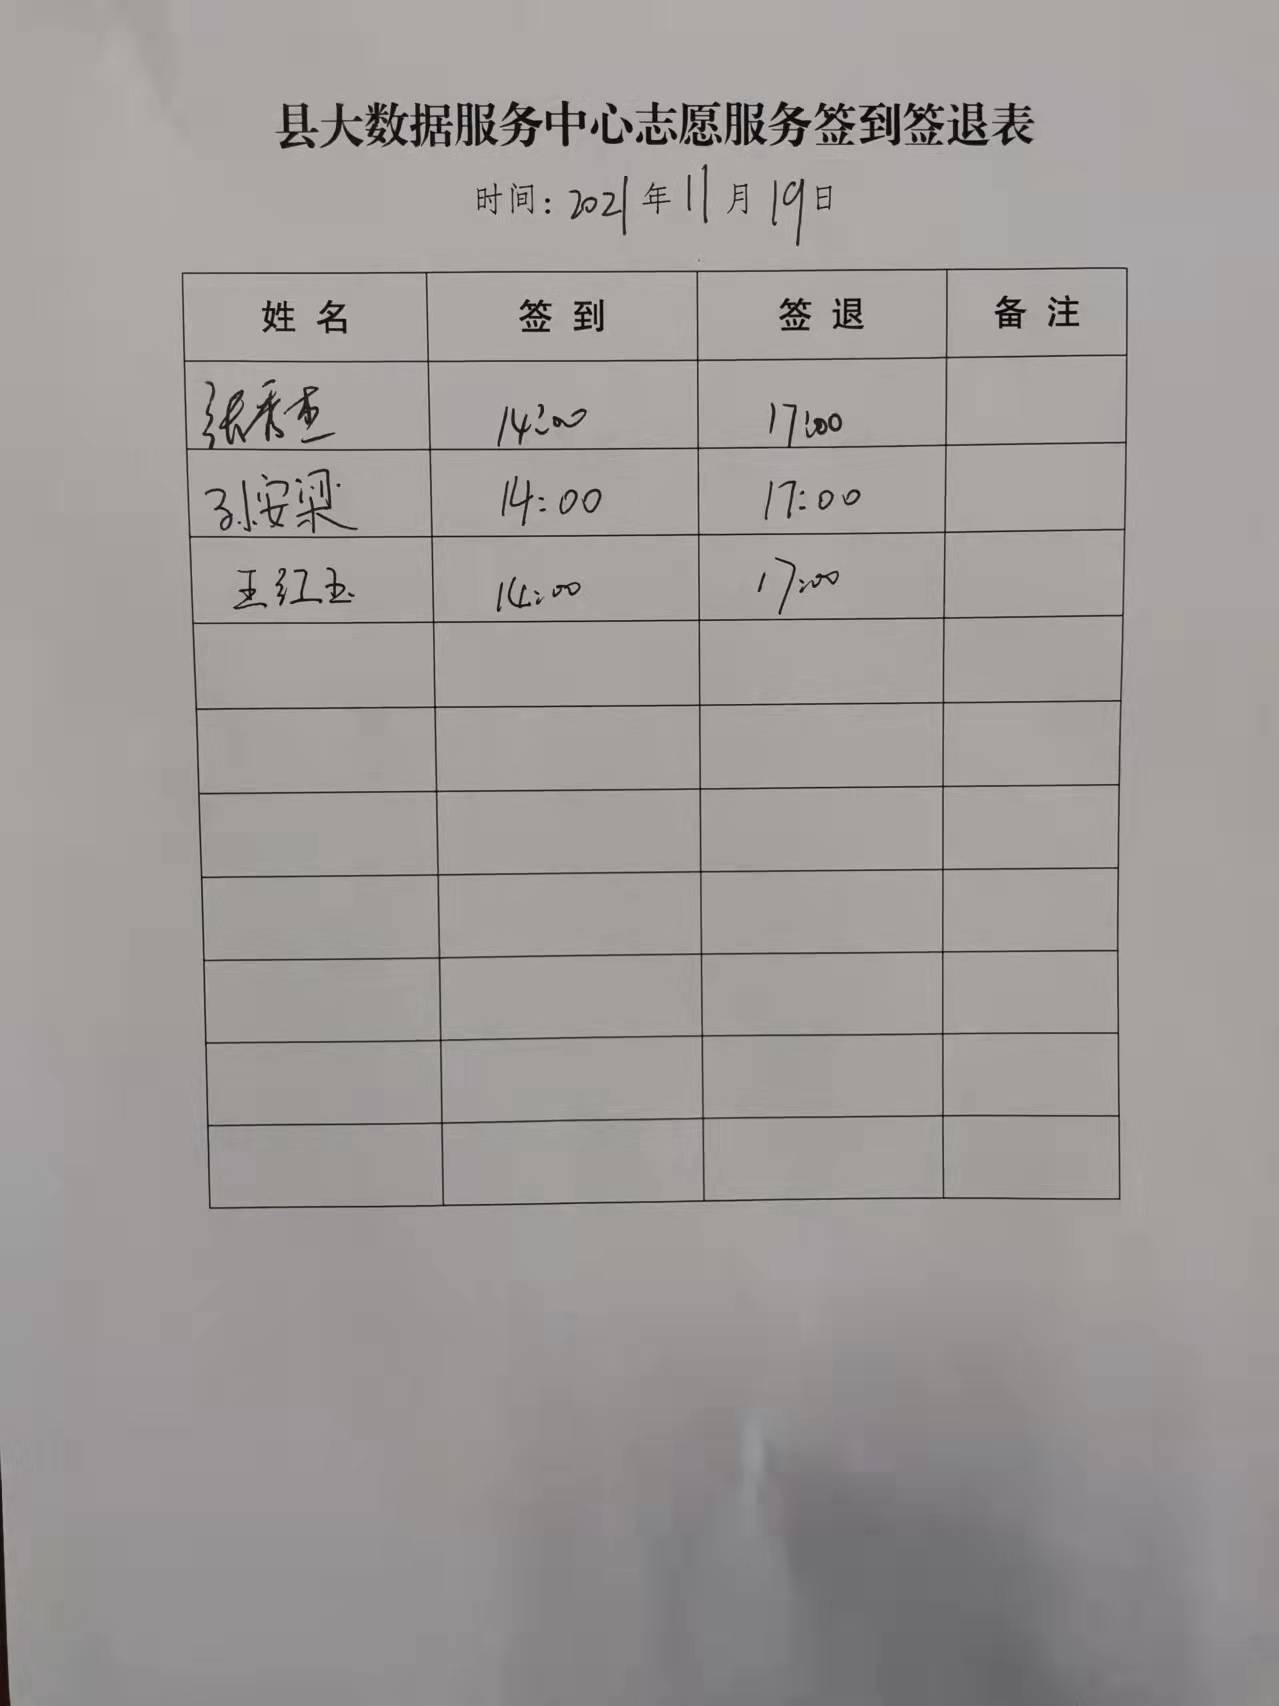 县大数据服务中心志愿服务签到签退表
时间：2021年11月19日
姓名 签到 签退 备注
张秀 14:00 17:00
孙安梁 14:00 17:00
王红玉 14:00 17:00